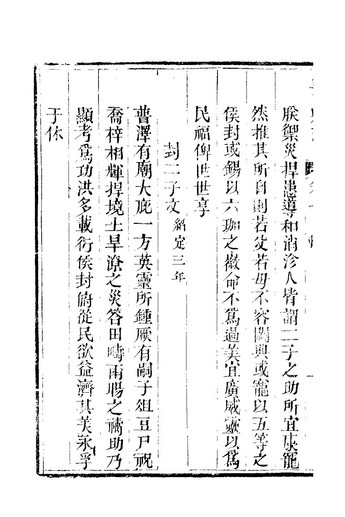 朕禦災捍患導和消沴人皆謂二子之助所宜庥寵
然推其所自則若父若母不容闕典或寵以五等之
侯封或錫以六珈之徽命不爲過美宜廣威靈以爲
民福俾世世享
封二子文 紹定三年
普澤有廟大庇一方英靈所鍾厥有嗣子俎豆尸祝
喬梓相輝捍境土旱潦之災答田疇雨暘之禱助乃
顯考爲功洪多載衍侯封俯從民欲益濟其美永孚
于休